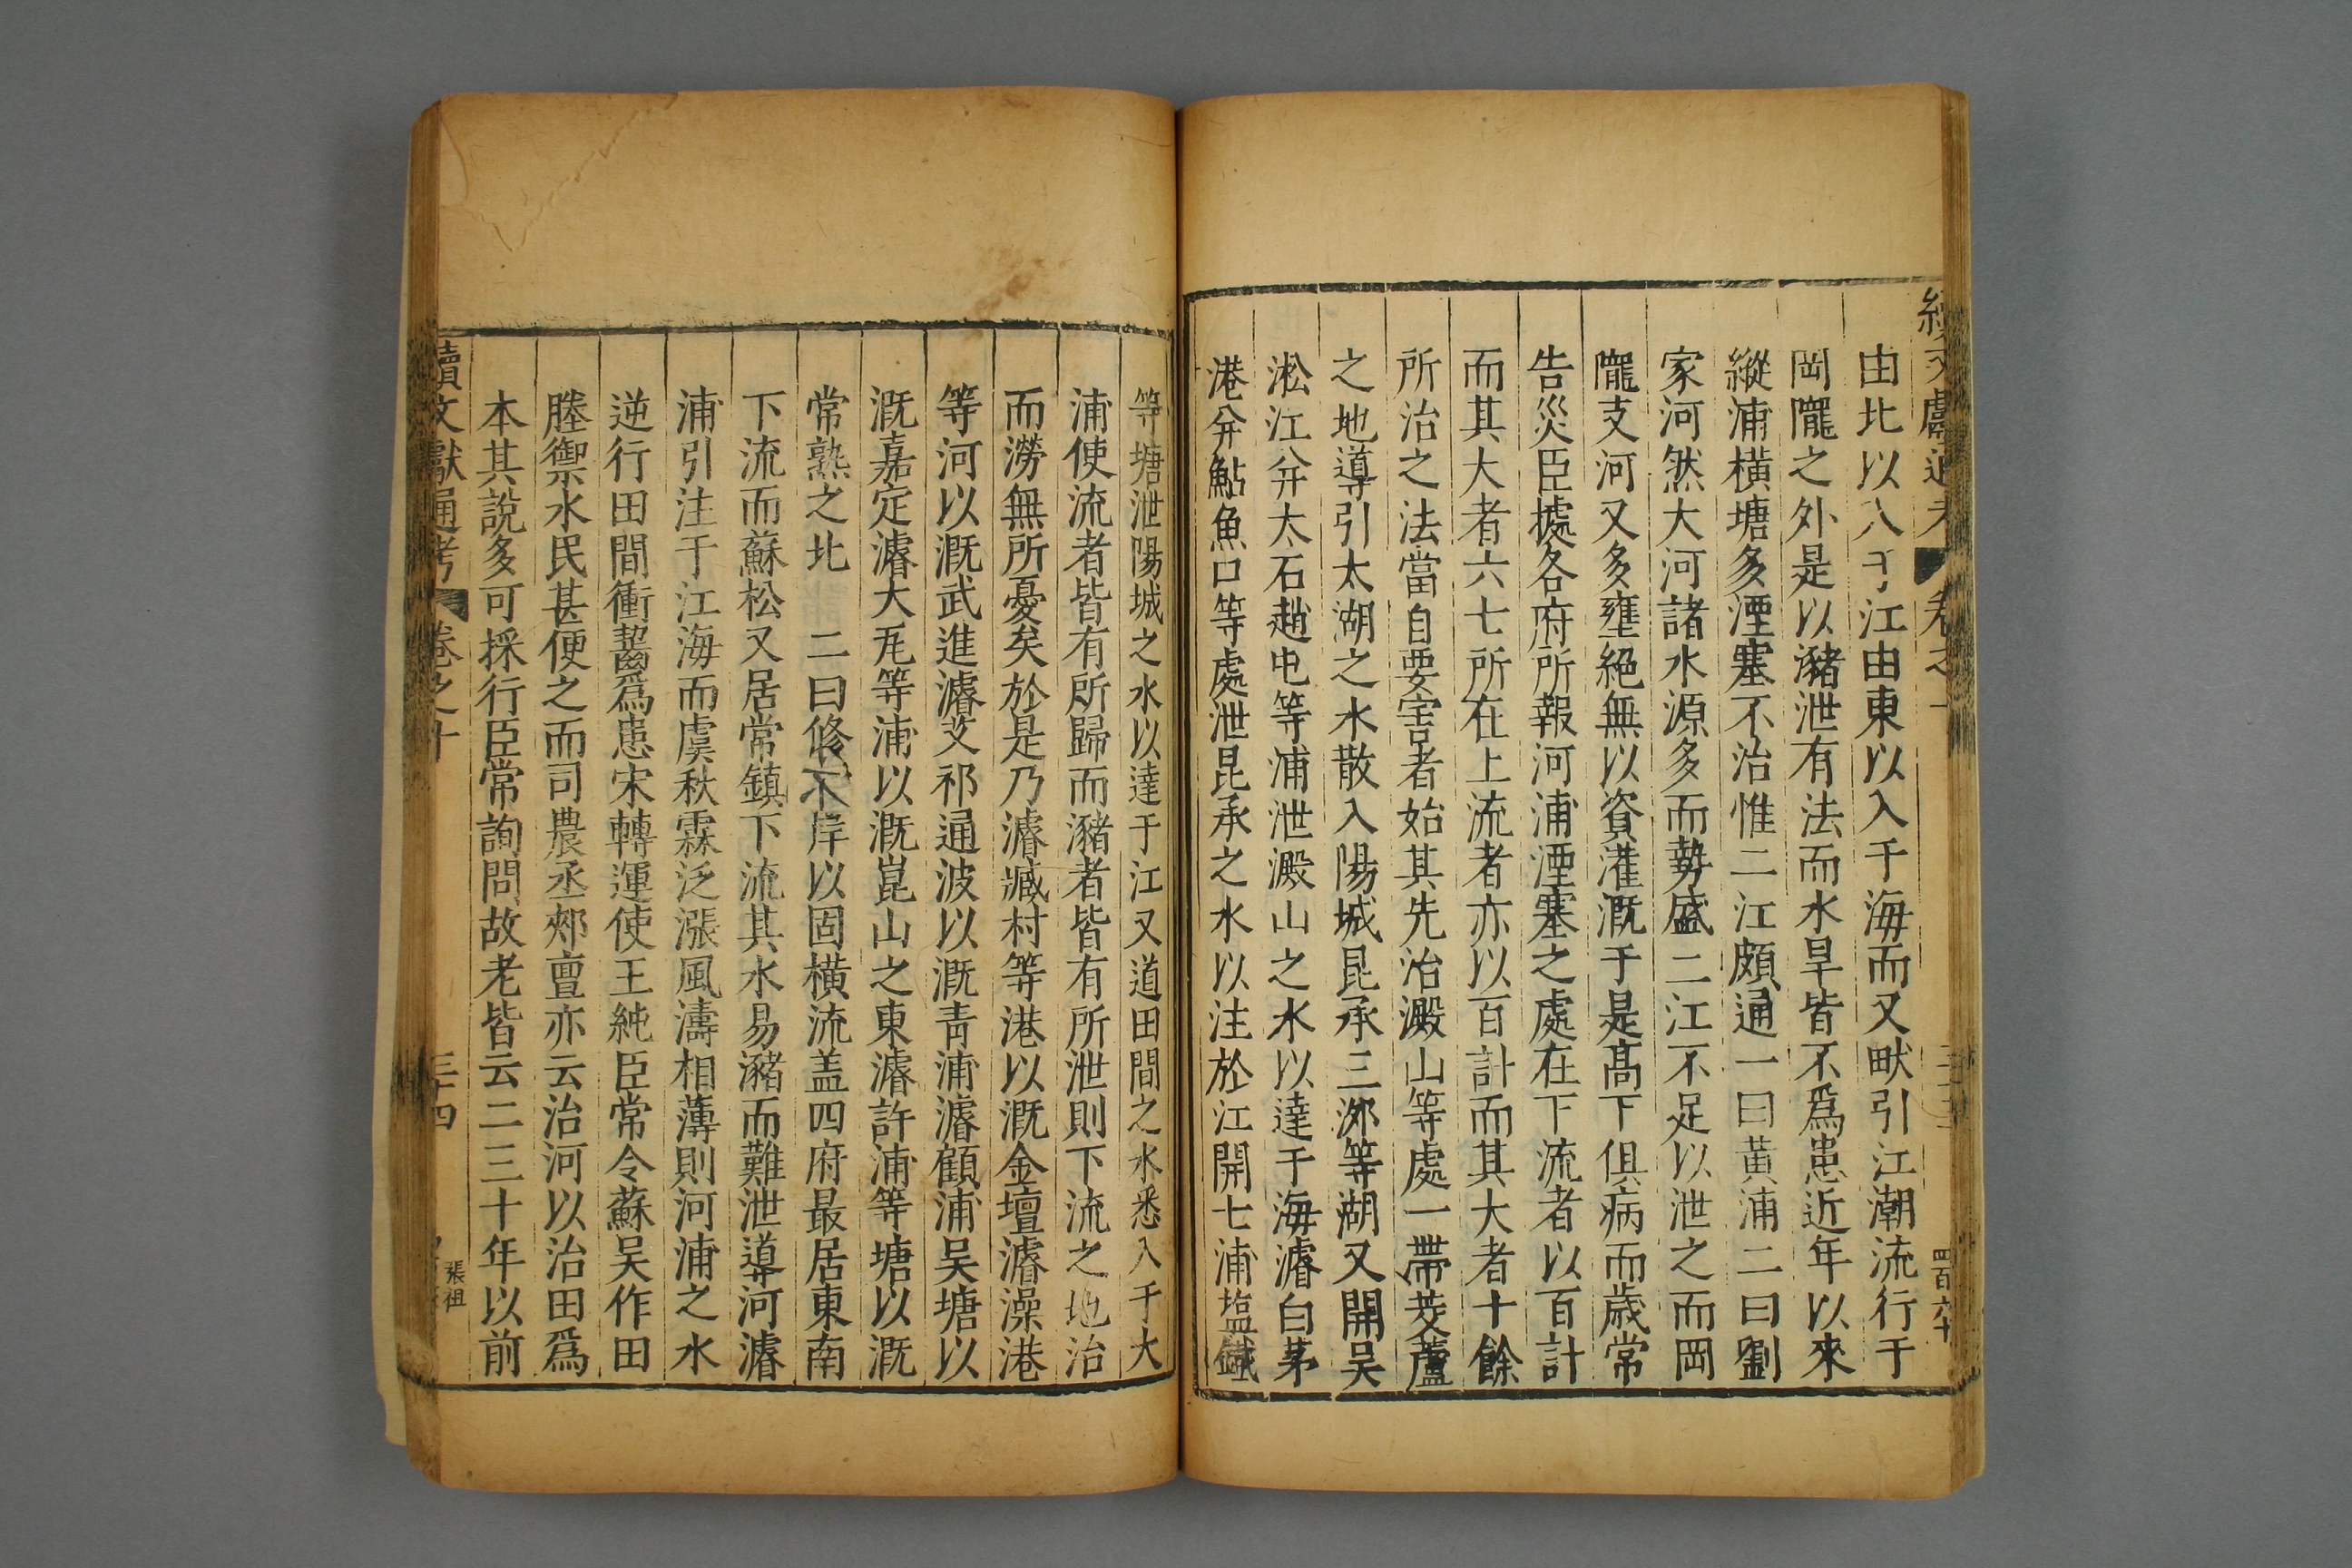 由北以入于江由東以入于海而又畎引江潮流行于
岡隴之外是以瀦泄有法而水旱皆不爲患近年以來
縱浦橫塘多湮塞不治惟二江頗通一曰黃浦二曰劉
家河然大河諸水源多而勢盛二江不足以泄之而岡
隴支河又多壅絕無以資灌漑于是高下俱病而歲常
告災臣據各府所報河浦湮塞之處在下流者以百計
而其大者六七所在上流者亦以百計而其大者十餘
所治之法當自要害者始其先治澱山等處一帶茭蘆
之地導引太湖之水散入陽城昆承三泖等湖又開吴
淞江并太石趙屯等浦泄澱山之水以達于海濬白茅
港并鮎魚口等處泄昆承之水以注於江開七浦塩鐵
等塘泄陽城之水以達于江又道田間之水悉入于大
浦使流者皆有所歸而瀦者皆有所泄則下流之地治
而澇無所憂矣於是乃濬臧村等港以漑金壇濬澡港
等河以漑武進濬艾祁通波以漑青浦濬顧浦吴塘以
漑嘉定濬大瓦等浦以漑崑山之東濬許浦等塘以漑
常熟之北 二曰修圩岸以固橫流盖四府最居東南
下流而蘇松又居常鎮下流其水易瀦而難泄導河濬
浦引注于江海而虞秋霖泛漲風濤相薄則河浦之水
逆行田間衝齧爲患宋轉運使王純臣常令蘇吴作田
塍禦水民甚便之而司農丞郟亶亦云治河以治田爲
本其說多可採行臣常詢問故老皆云二三十年以前
續文獻通考 卷之十 三十四 張祖